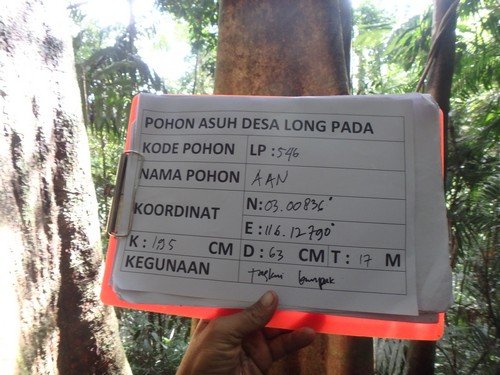 POHON ASUH DESA LONG PADA
KODE POHON LP : 546
NAMA POHON AAN
KOORDINAT N: 03.00836°
E : 116.12790°
K : 195 CM D : 63 CM T : 17 M
KEGUNAAN